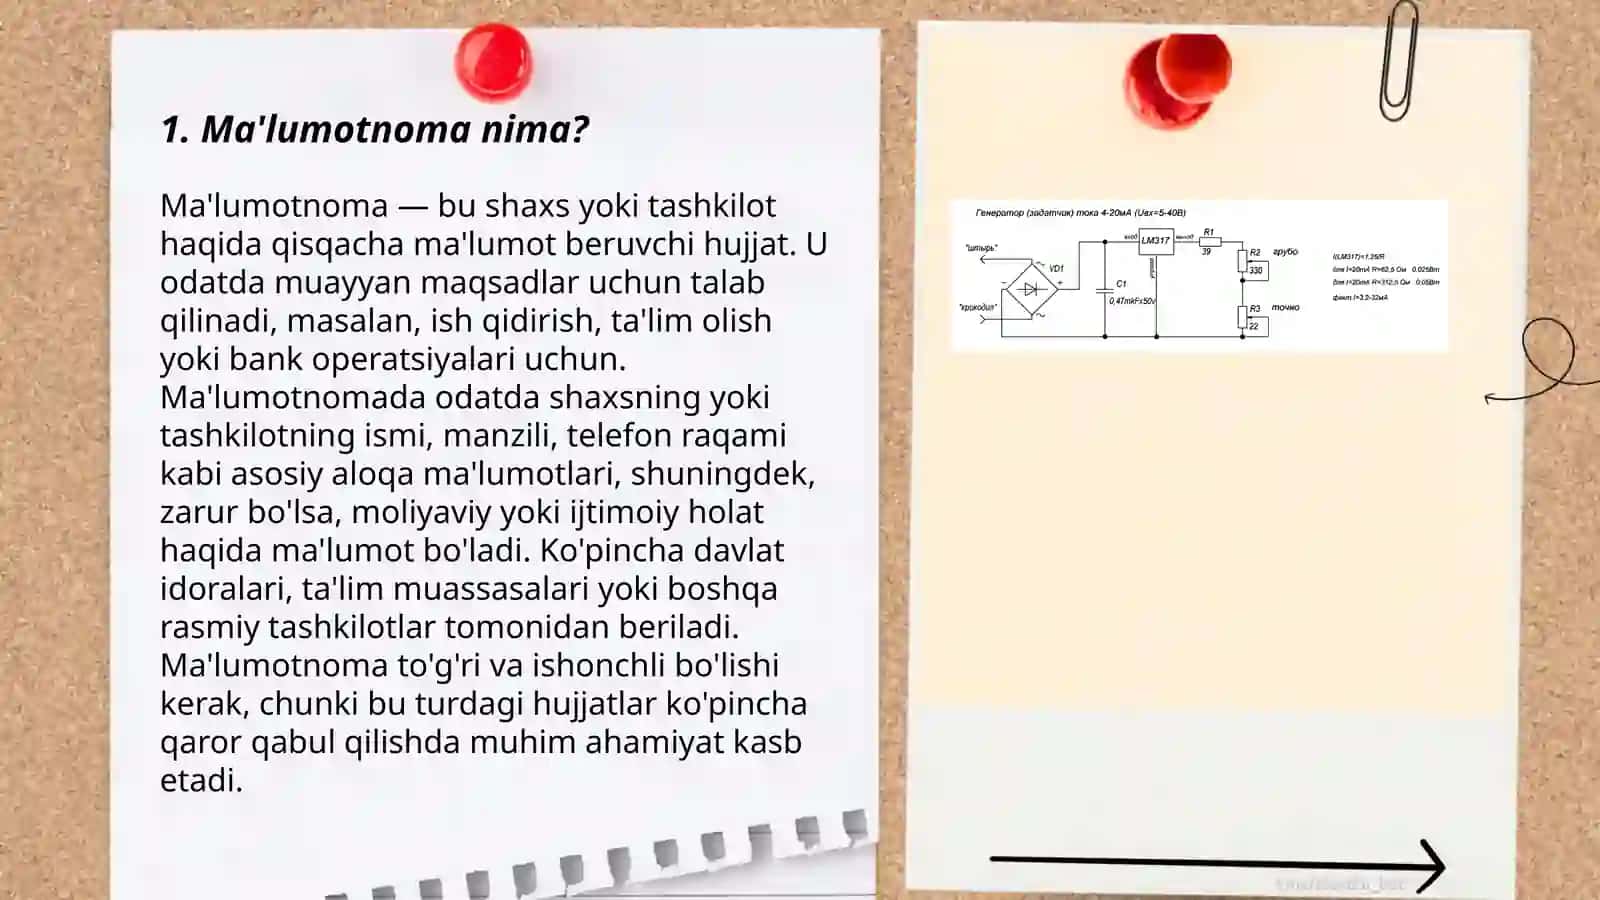 1. Ma'lumotnoma nima?
Ma'lumotnoma — bu shaxs yoki tashkilot
haqida qisqacha ma'lumot beruvchi hujjat. U
odatda muayyan maqsadlar uchun talab
qilinadi, masalan, ish qidirish, ta'lim olish
yoki bank operatsiyalari uchun.
Ma'lumotnomada odatda shaxsning yoki
tashkilotning ismi, manzili, telefon raqami
kabi asosiy aloqa ma'lumotlari, shuningdek,
zarur bo'lsa, moliyaviy yoki ijtimoiy holat
haqida ma'lumot bo'ladi. Ko'pincha davlat
idoralari, ta'lim muassasalari yoki boshqa
rasmiy tashkilotlar tomonidan beriladi.
Ma'lumotnoma to'g'ri va ishonchli bo'lishi
kerak, chunki bu turdagi hujjatlar ko'pincha
qaror qabul qilishda muhim ahamiyat kasb
etadi.
Генератор (задатчик) тока 4-20мА (Uвх=5-40В)
"штырь"
VD1
"крокодил"
C1
0,47mkFx50v
вход
LM317
выход
R1
39
R2
330
грубо
R3
22
точно
I(LM317)=1,25/R
для I=20mA R=62,5 Ом 0.025Вт
факт I=3.2-32мА